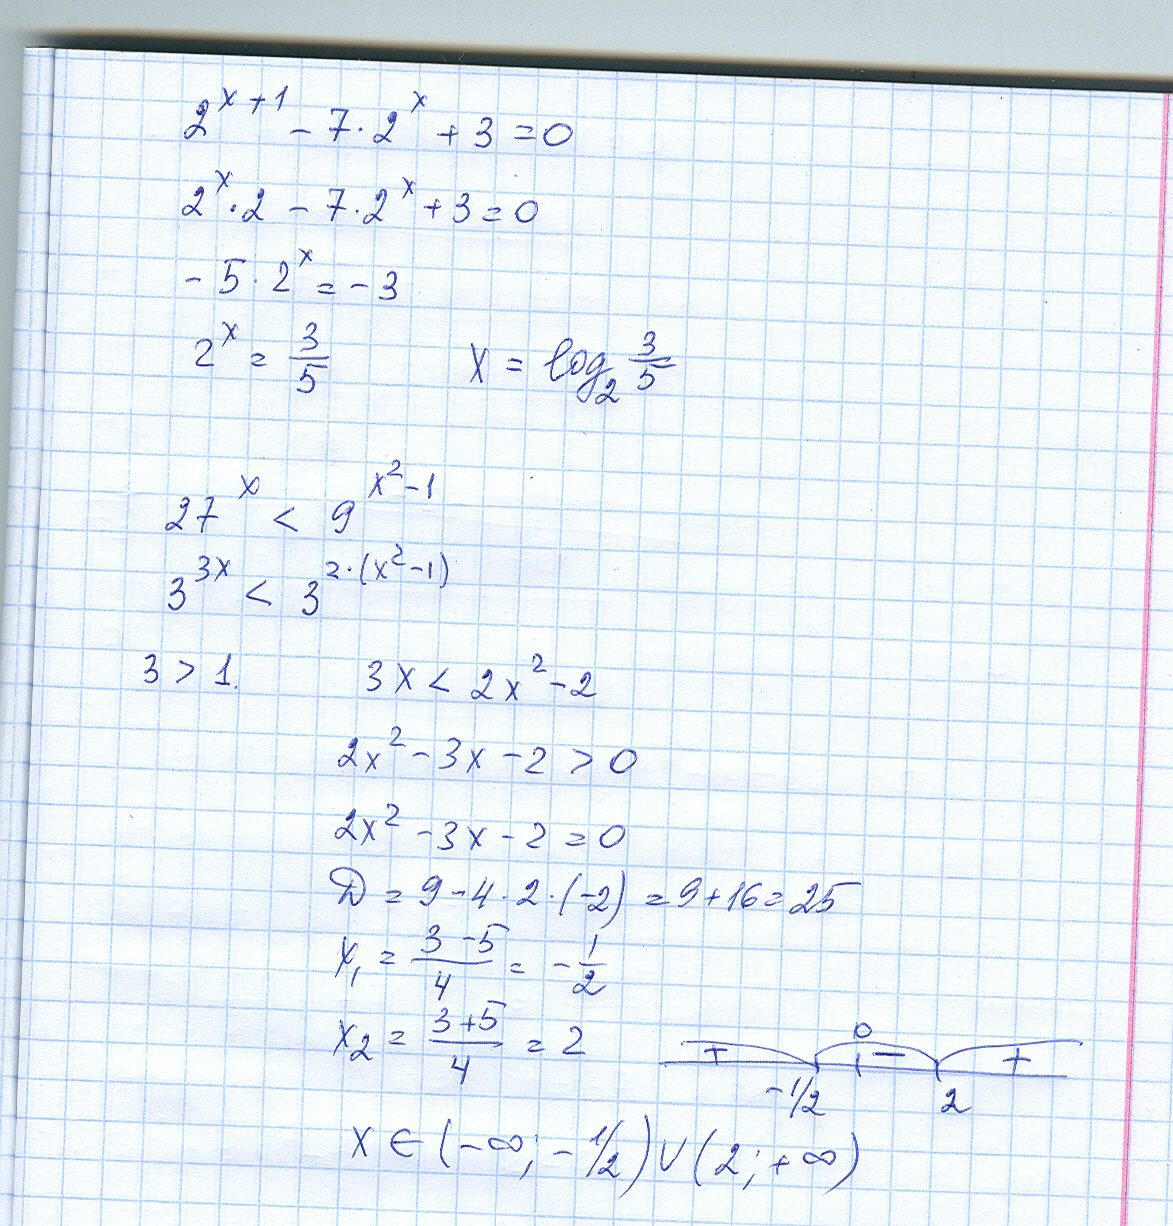 2^(x+1) - 7·2^x + 3 = 0
2^x·2 - 7·2^x + 3 = 0
-5·2^x = -3
2^x = 3/5 x = log_2 3/5
27^x < 9^(x²-1)
3^(3x) < 3^(2·(x²-1))
3 > 1. 3x < 2x² - 2
2x² - 3x - 2 > 0
2x² - 3x - 2 = 0
D = 9 - 4·2·(-2) = 9 + 16 = 25
x₁ = (3-5)/4 = -1/2
x₂ = (3+5)/4 = 2
+ 0 − +
-1/2 2
x ∈ (-∞; -1/2) ∪ (2; +∞)